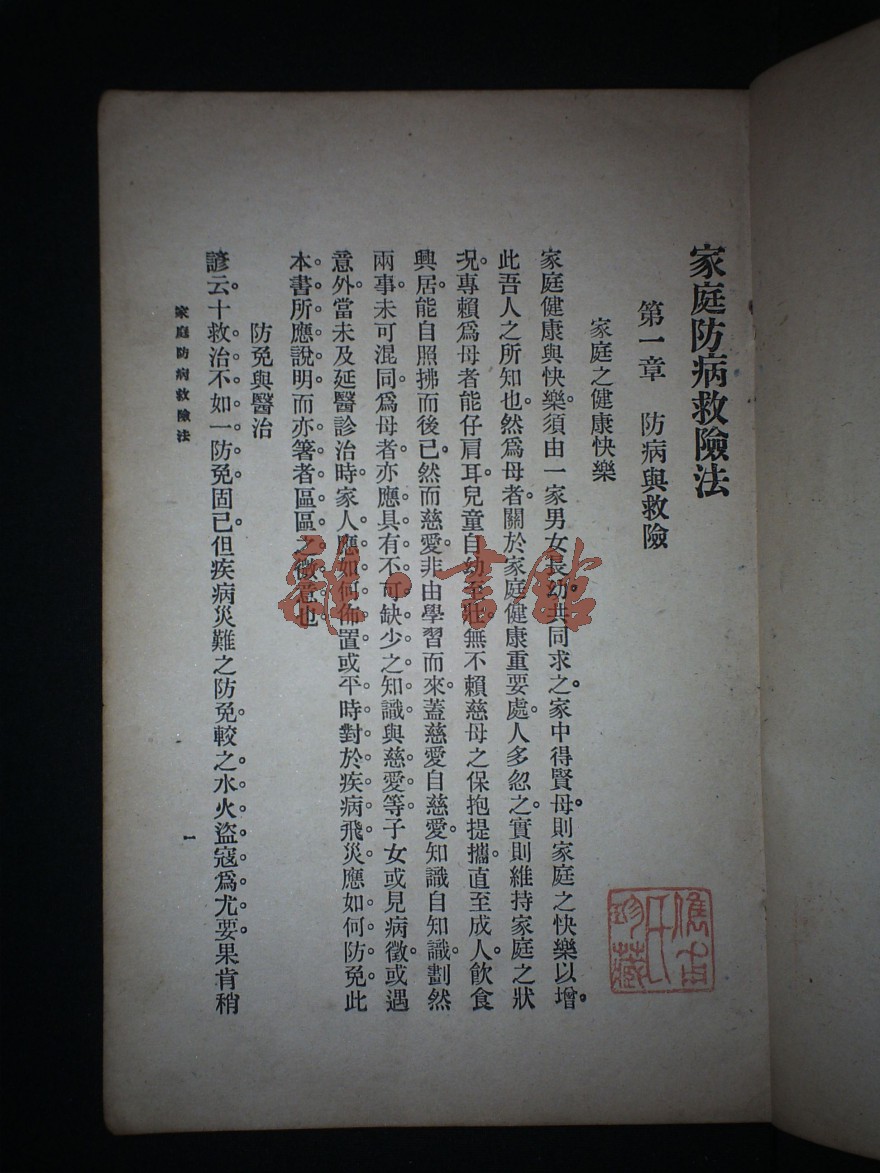 家庭防病救險法
第一章　防病與救險
家庭之健康快樂
家庭健康與快樂。須由一家男女長幼共同求之。家中得賢母。則家庭之快樂以增。
此吾人之所知也。然爲母者。關於家庭健康重要處。人多忽之。實則維持家庭之狀
況。專賴爲母者能仔肩耳。兒童自幼至壯。無不賴慈母之保抱提攜。直至成人。飲食
興居。能自照拂而後已。然而慈愛非由學習而來。蓋慈愛自慈愛。知識自知識。劃然
兩事。未可混同。爲母者。亦應具有不可缺少之知識與慈愛等。子女或見病徵。或遇
意外。當未及延醫診治時。家人應如何佈置。或平時對於疾病飛災。應如何防免。此
本書所應說明。而亦箸者區區之微意也。
防免與醫治
諺云。十救治不如一防免。固已。但疾病災難之防免。較之水火盜寇爲尤要。果肯稍
家庭防病救險法
一
珍藏
書館